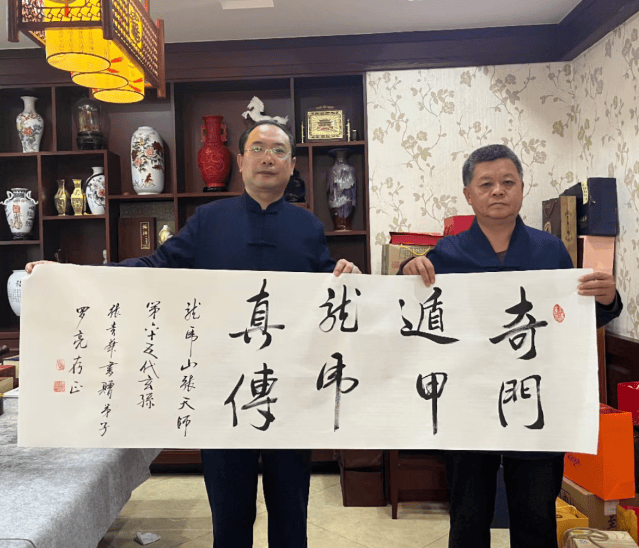 奇門
遁甲
龍虎
真傳
龍虎山張天師
第六十五代玄孫
張青華書贈弟子
罗亮存正